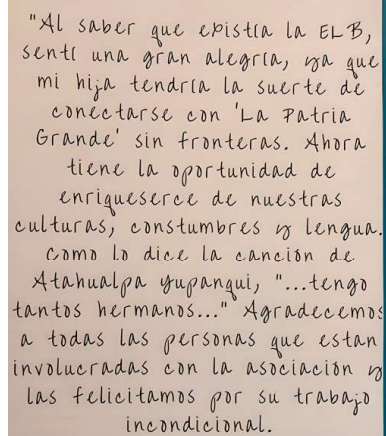 "Al saber que existía la ELB,
sentí una gran alegría, ya que
mi hija tendría la suerte de
conectarse con 'La Patria
Grande' sin fronteras. Ahora
tiene la oportunidad de
enriqueserce de nuestras
culturas, constumbres y lengua.
Como lo dice la canción de
Atahualpa Yupanqui, "...tengo
tantos hermanos..." Agradecemos
a todas las personas que estan
involucradas con la asociación y
las felicitamos por su trabajo
incondicional.